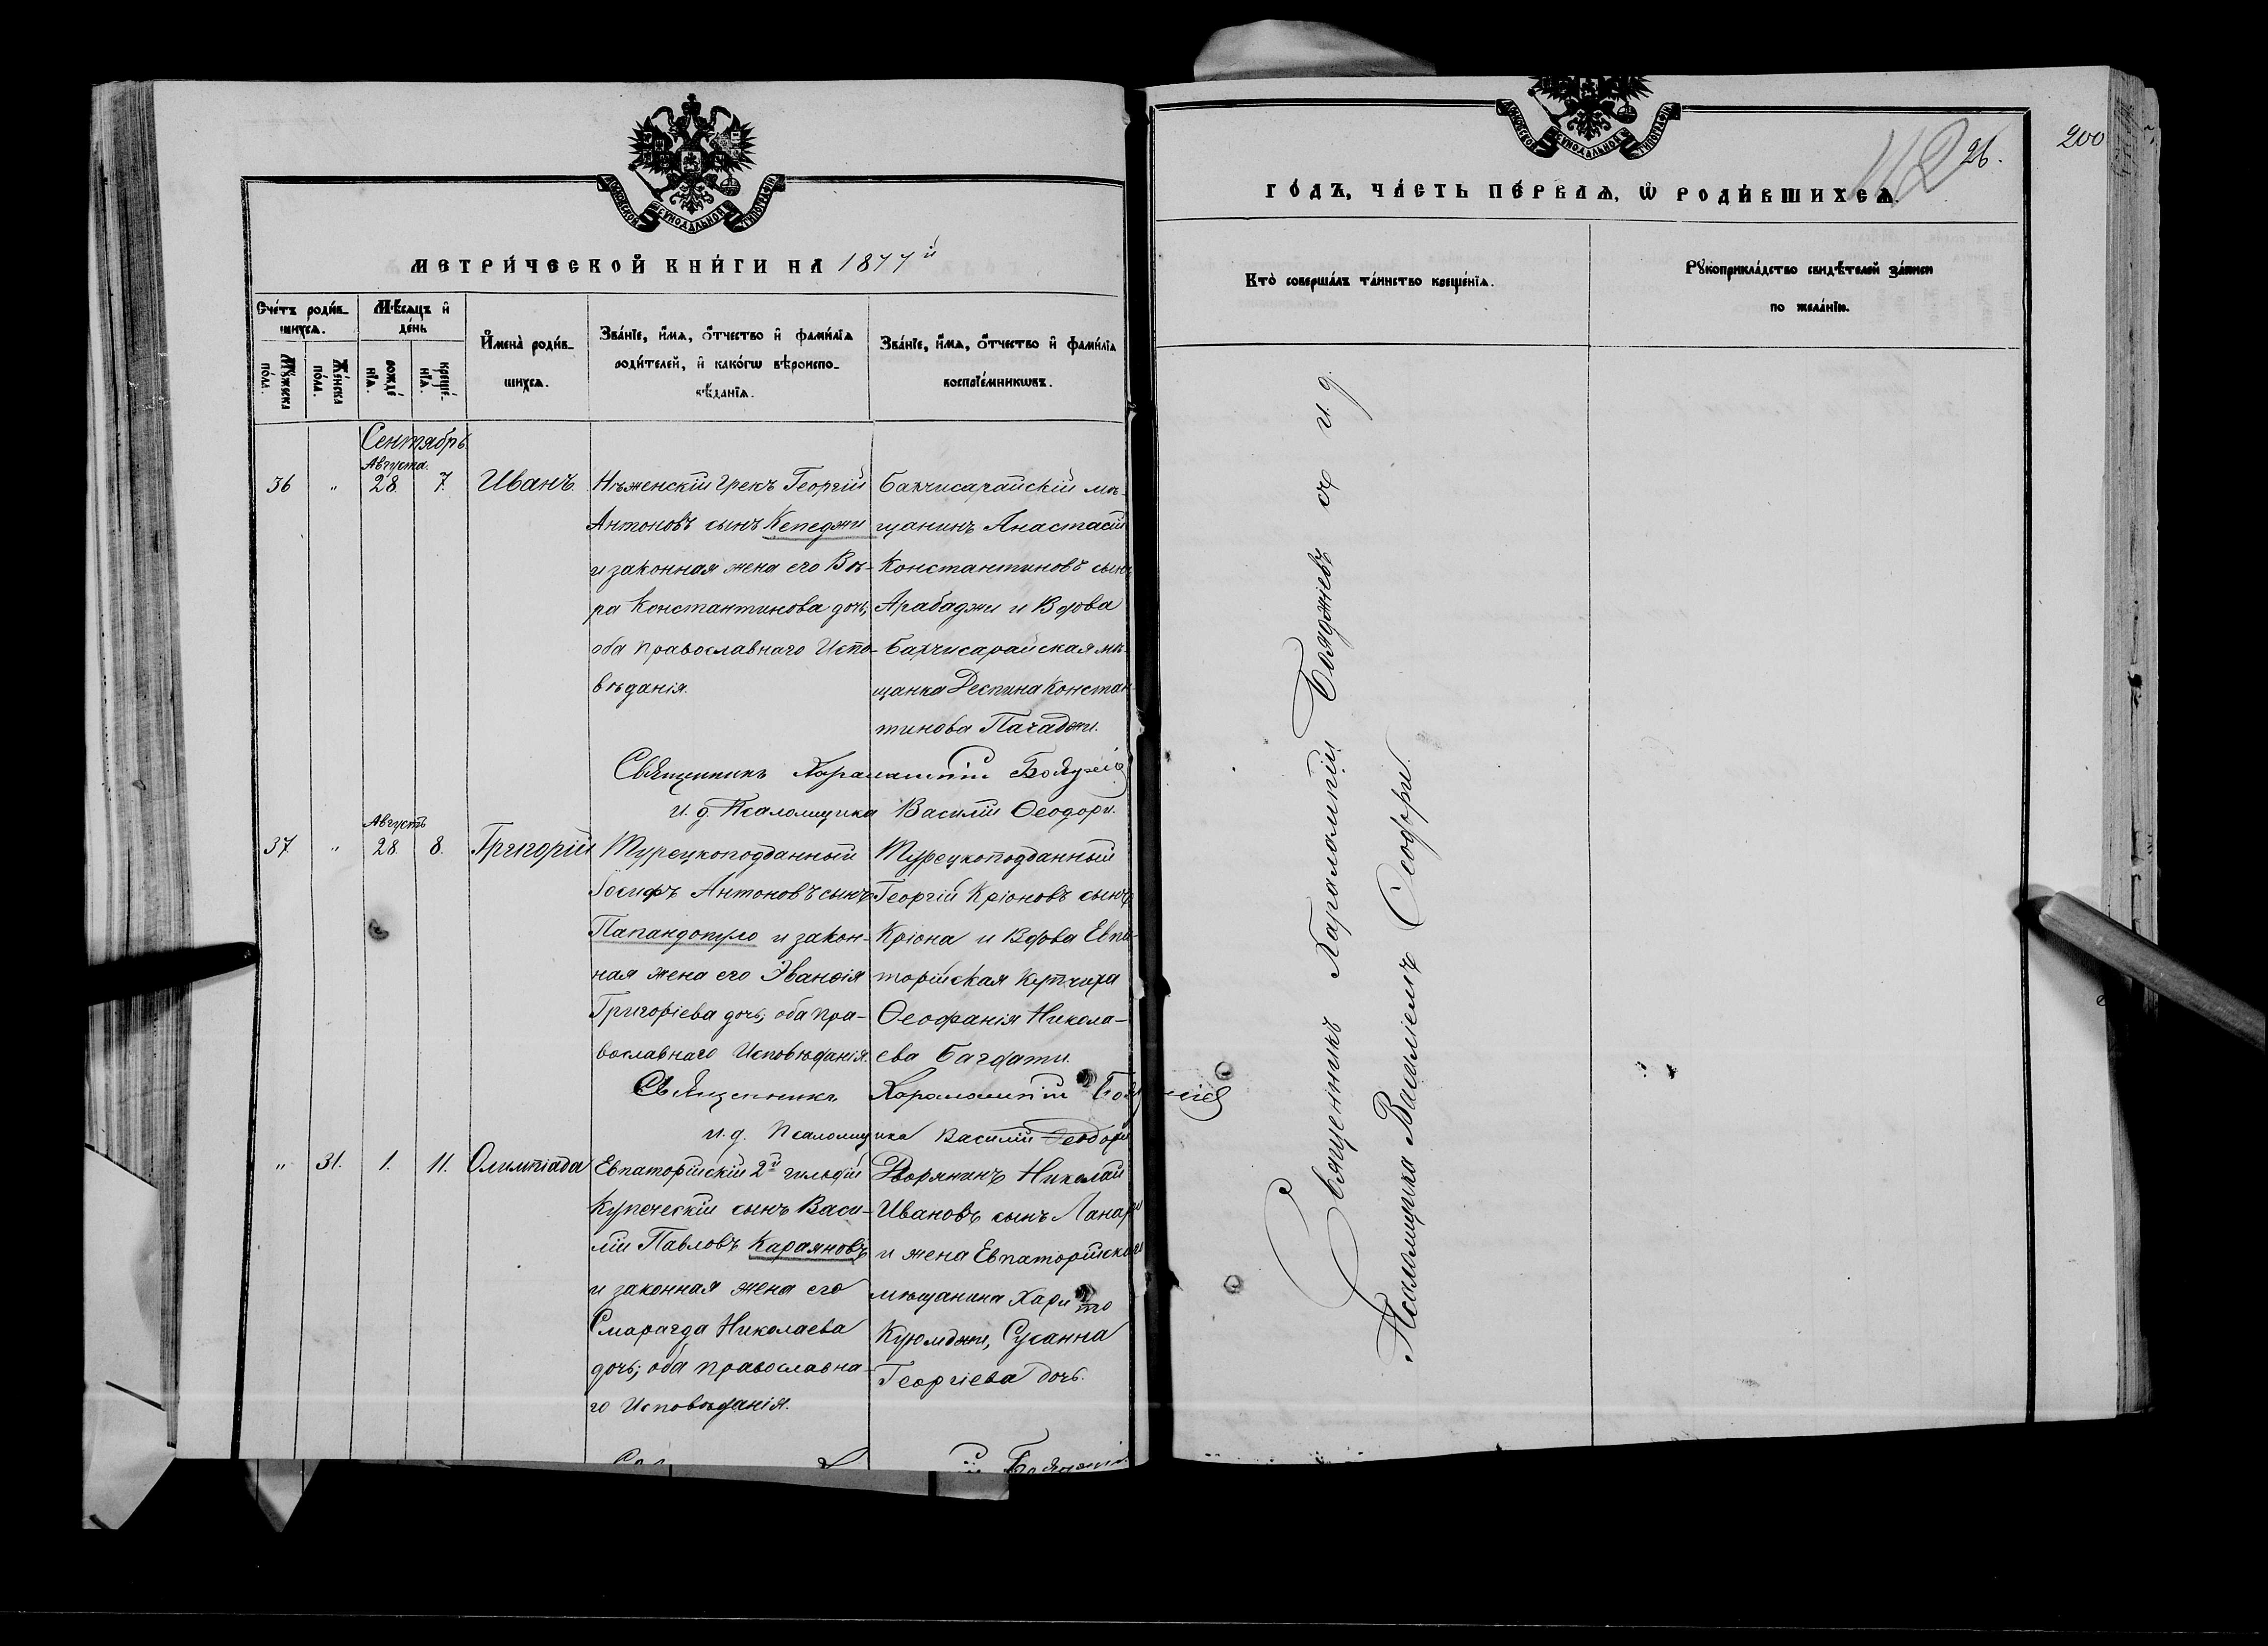 МОСКОВСКОЙ СУНОДАЛЬНОЙ ТИПОГРАФІИ
МЕТРИ́ЧЕСКОЙ КНИ́ГИ НА 1877й
Сче́тъ роди́в-
шихсѧ.
Мѣ́сѧцъ и҆
де́нь
Мꙋ́жеска
по́ла.
Же́нска
по́ла.
рожде́
нїѧ.
креще́-
нїѧ.
И҆мена̀ роди́в-
шихсѧ.
Зва́нїе, и҆́мѧ, ѻ҆́тчество и҆ фами́лїѧ
роди́телей, и҆ како́гѡ вѣроиспо-
вѣ́данїѧ.
Зва́нїе, и҆́мѧ, ѻ҆́тчество и҆ фами́лїѧ
воспрїе́мникѡвъ.
Сентябрь.
Августа.
36 " 28 7. Иванъ.
Нѣженскій Грекъ Георгій
Антоновъ сынъ Кепеджи
и законная жена его Вѣ-
ра Константинова дочь,
оба православнаго Испо-
вѣданія.
Бахчисарайскій мѣ-
щанинъ Анастасій
Константиновъ сынъ
Арабаджи и Вдова
Бахчисарайская мѣ-
щанка Деспина Констан-
тинова Пачаджи.
Священникъ Харалампій Бояджіев
И. д. Псаломщика Василій Ѳеодори.
Августъ
37. " 28 8. Григорій
Турецкоподданный
Іосифъ Антоновъ сынъ
Папандопуло и закон-
ная жена его Эванѳія
Григоріева дочь; оба пра-
вославнаго Исповѣданія.
Турецкоподданный
Георгій Кріоновъ сынъ
Кріона и Вдова Евпа-
торійская Купчиха
Ѳеофанія Никола-
ева Багдати.
Священникъ Харалампій Бояджіев
и. д. Псаломщика Василій Ѳеодори
" 31. 1. 11. Олимпіада
Евпаторійскій 2й гильдіи
Купеческій сынъ Васи-
лій Павловъ Караяновъ
и законная жена его
Смарагда Николаева
дочь; оба православна-
го Исповѣданія.
Дворянинъ Николай
Ивановъ сынъ Ланари
и жена Евпаторійскаго
мѣщанина Харито
Куюмджи, Сусанна
Георгіева дочь.
МОСКОВСКОЙ СУНОДАЛЬНОЙ ТИПОГРАФІИ
112 26. 200
ГО́ДЪ, ЧА́СТЬ ПЕ́РВАѦ, Ѡ҆ РОДИ́ВШИХСѦ.
Кто̀ соверша́лъ та́инство креще́нїѧ.
Рꙋкоприкла́дство свидѣ́телей за́писи
по жела́нїю.
Священникъ Харалампій Бояджіевъ и д.
Псаломщика Василіемъ Ѳеодори.